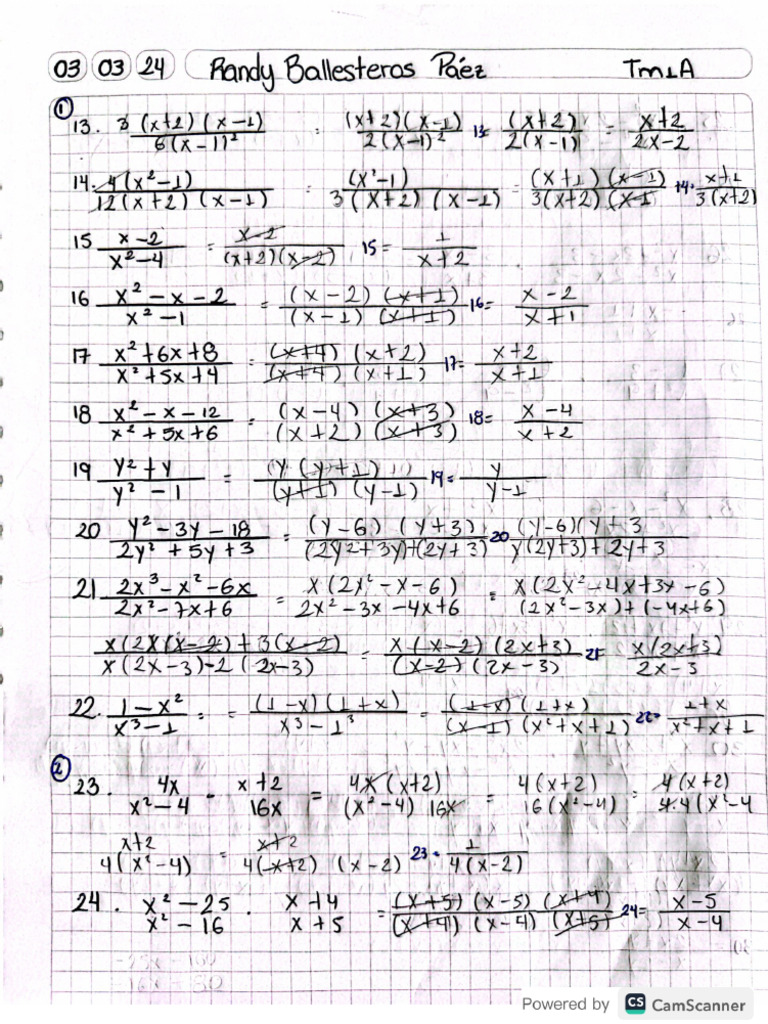 03 03 24 Randy Ballesteros Páez Tm1A
①
13. 3(x+2)(x-1)/6(x-1)² : (x+2)(x-1)/2(x-1)² 13= (x+2)/2(x-1) = x+2/2x-2
14. 4(x²-1)/12(x+2)(x-1) = (x²-1)/3(x+2)(x-1) = (x+1)(x-1)/3(x+2)(x-1 14= x+1/3(x+2)
15 x-2/x²-4 = x-2/(x+2)(x-2) 15= 1/x+2
16 x²-x-2/x²-1 = (x-2)(x+1)/(x-1)(x+1) 16= x-2/x+1
17 x²+6x+8/x²+5x+4 = (x+4)(x+2)/(x+4)(x+1) 17= x+2/x+1
18 x²-x-12/x²+5x+6 = (x-4)(x+3)/(x+2)(x+3) 18= x-4/x+2
19 y²+y/y²-1 = (y(y+1)/(y+1)(y-1) 19= y/y-1
20 y²-3y-18/2y²+5y+3 = (y-6)(y+3)/(2y2+3y)+(2y+3) 20 (y-6)(y+3/y(2y+3)+2y+3
21 2x³-x²-6x/2x²-7x+6 = x(2x²-x-6)/2x²-3x-4x+6 = x(2x²-4x+3x-6)/(2x²-3x)+(-4x+6)
x(2x(x-2)+3(x-2)/x(2x-3)-2(2x-3) = x(x-2)(2x+3)/(x-2)(2x-3) 21= x(2x+3)/2x-3
22. 1-x²/x³-1 : = (1-x)(1+x)/x³-1³ = (1-x)(1+x)/(x-1)(x²+x+1) 22= 1+x/x²+x+1
②
23. 4x/x²-4 · x+2/16x = 4x(x+2)/(x²-4) 16x = 4(x+2)/16(x²-4) = 4(x+2)/4.4(x²-4
x+2/4(x²-4) = x+2/4(x+2)(x-2) 23= 1/4(x-2)
24. x²-25/x²-16 · x+4/x+5 = (x+5)(x-5)(x+4)/(x+4)(x-4)(x+5) 24= x-5/x-4
Powered by CS CamScanner